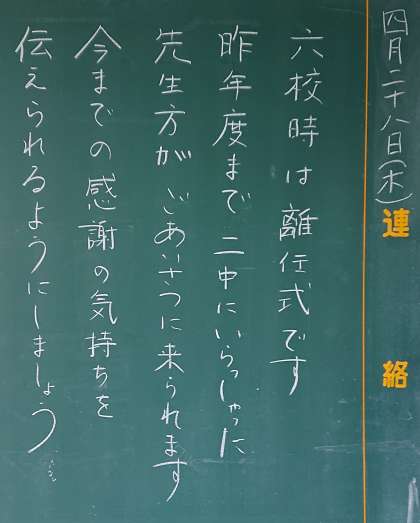 四月二十八日(木)
連絡
六校時は離任式です
昨年度まで二中にいらっしゃった
先生方がごあいさつに来られます
今までの感謝の気持ちを
伝えられるようにしましょう